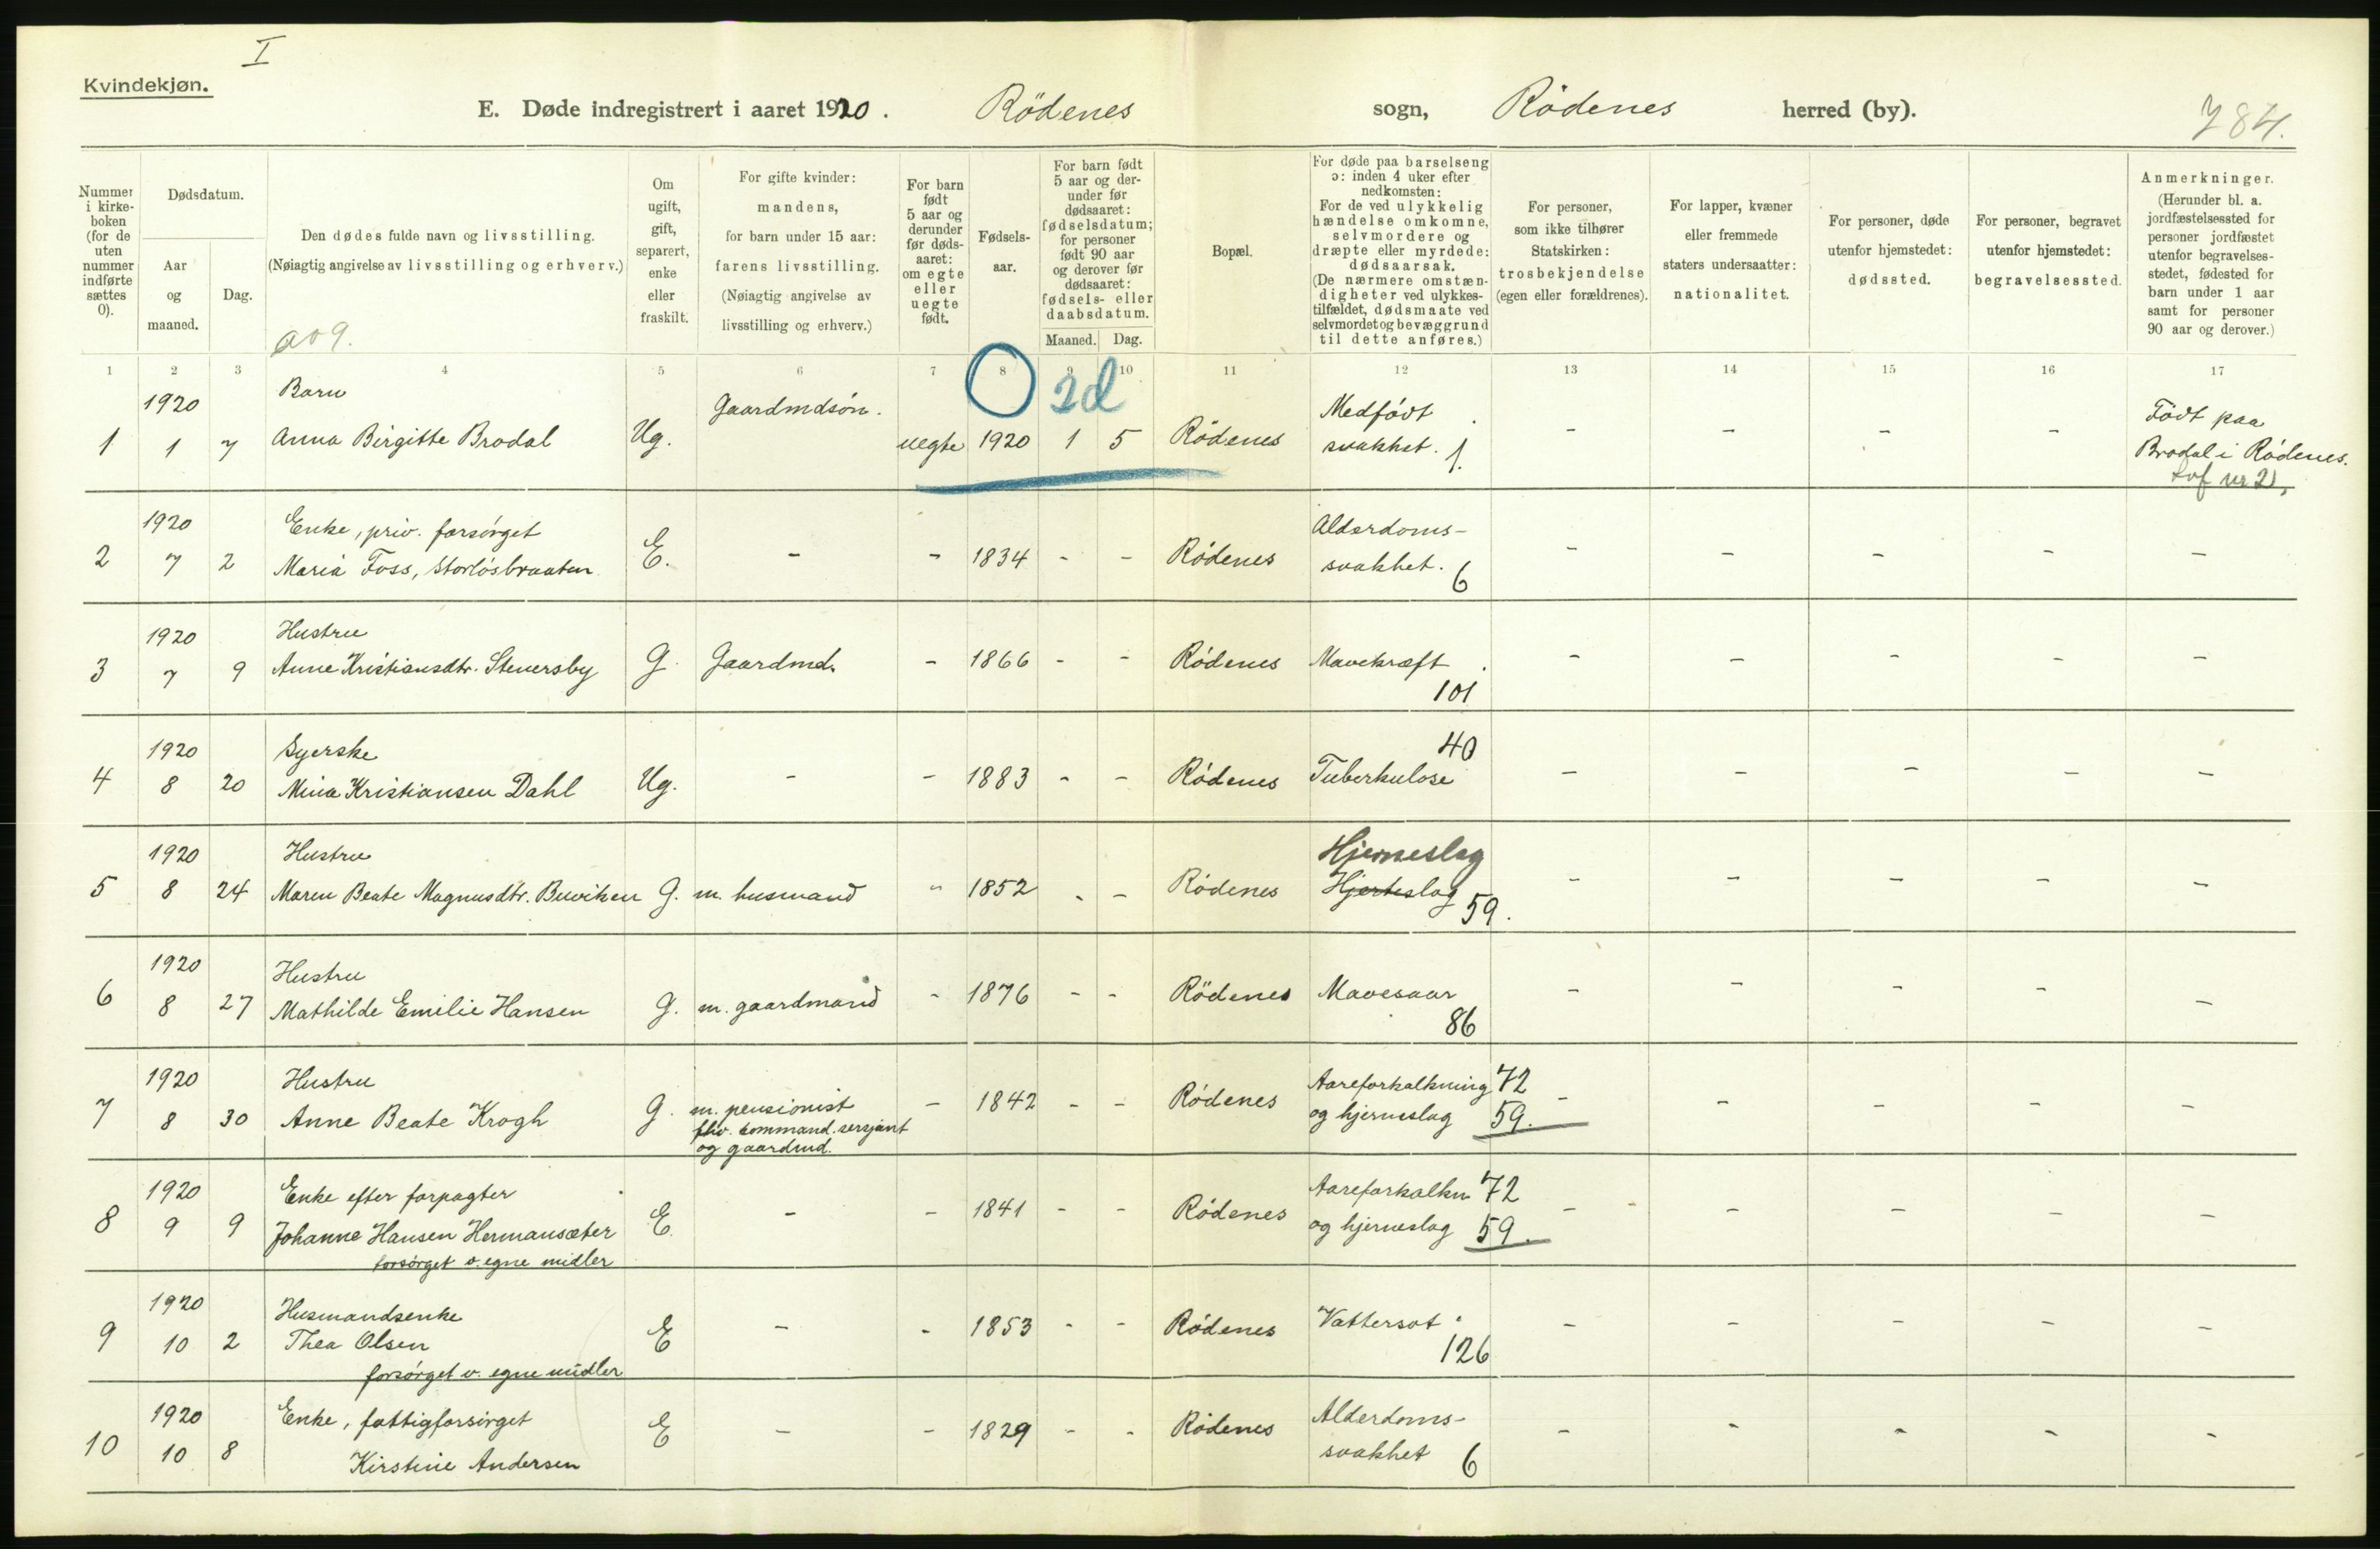 I
Kvindekjøn.
E. Døde indregistrert i aaret 1920. Rödenes sogn, Rödenes herred (by). 784.
Nummer i kirke-boken (for de uten nummer indførte sættes 0).
Dødsdatum.
Aar og maaned.
Dag.
Den dødes fulde navn og livsstilling.
(Nøiagtig angivelse av livsstilling og erhverv.)
Om ugift, gift, separert, enke eller fraskilt.
For gifte kvinder: mandens, for barn under 15 aar: farens livsstilling.
(Nøiagtig angivelse av livsstilling og erhverv.)
For barn født 5 aar og derunder før dødsaaret: om egte eller uegte født.
Fødselsaar.
For barn født 5 aar og derunder før dødsaaret: fødselsdatum; for personer født 90 aar og derover før dødsaaret: fødsels- eller daabsdatum.
Maaned. Dag.
Bopæl.
For døde paa barselseng ɔ: inden 4 uker efter nedkomsten: For de ved ulykkelig hændelse omkomne, selvmordere og dræpte eller myrdede: dødsaarsak.
(De nærmere omstændigheter ved ulykkestilfældet, dødsmaate ved selvmordet og bevæggrund til dette anføres.)
For personer, som ikke tilhører Statskirken: trosbekjendelse (egen eller forældrenes).
For lapper, kvæner eller fremmede staters undersaatter: nationalitet.
For personer, døde utenfor hjemstedet: dødssted.
For personer, begravet utenfor hjemstedet: begravelsessted.
Anmerkninger.
(Herunder bl. a. jordfæstelsessted for personer jordfæstet utenfor begravelsesstedet, fødested for barn under 1 aar samt for personer 90 aar og derover.)
1 2 3 4 5 6 7 8 9 10 11 12 13 14 15 16 17
2d
1920 Barn Gaardmdsön. Medfödt Födt paa
1 1 7 Anna Birgitte Brodal Ug. uegte 1920 1 5 Rödenes svakhet. 1. - - - - Brodal i Rödenes.
Lof nr 21,
1920 Enke, priv. forsörget Alderdoms-
2 7 2 Maria Foss, Storlösbraaten E. - - 1834 - - Rödenes svakhet. 6 - - - - -
1920 Hustru
3 7 9 Anne Kristiansdtr. Stenersby G. Gaardmd. - 1866 - - Rödenes Mavekræft. - - - - -
101
1920 Syerske 40
4 8 20 Mina Kristiansen Dahl Ug. - - 1883 - - Rödenes Tuberkulose - - - - -
1920 Hustru Hjerneslag
5 8 24 Maren Beate Magnusdtr. Buviken G. m. husmand - 1852 - - Rödenes Hjerteslag 59. - - - - -
1920 Hustru
6 8 27 Mathilde Emilie Hansen G. m. gaardmand - 1876 - - Rödenes Mavesaar - - - - -
86
1920 Hustru Aareforkalkning 72
7 8 30 Anne Beate Krogh G. m. pensionist - 1842 - - Rödenes og hjerneslag 59. - - - - -
fhv. command. sersjant
og gaardmd.
1920 Enke efter forpagter Aareforkalkn 72
8 9 9 Johanne Hansen Hermansæter E. - - 1841 - - Rödenes og hjerneslag 59. - - - - -
forsörget v. egne midler
1920 Husmandsenke
9 10 2 Thea Olsen E - - 1853 - - Rödenes Vattersot. - - - - -
forsörget v. egne midler 126
1920 Enke, fattigforsörget Alderdoms-
10 10 8 Kirstine Andersen E - - 1829 - - Rödenes svakhet 6 - - - - -